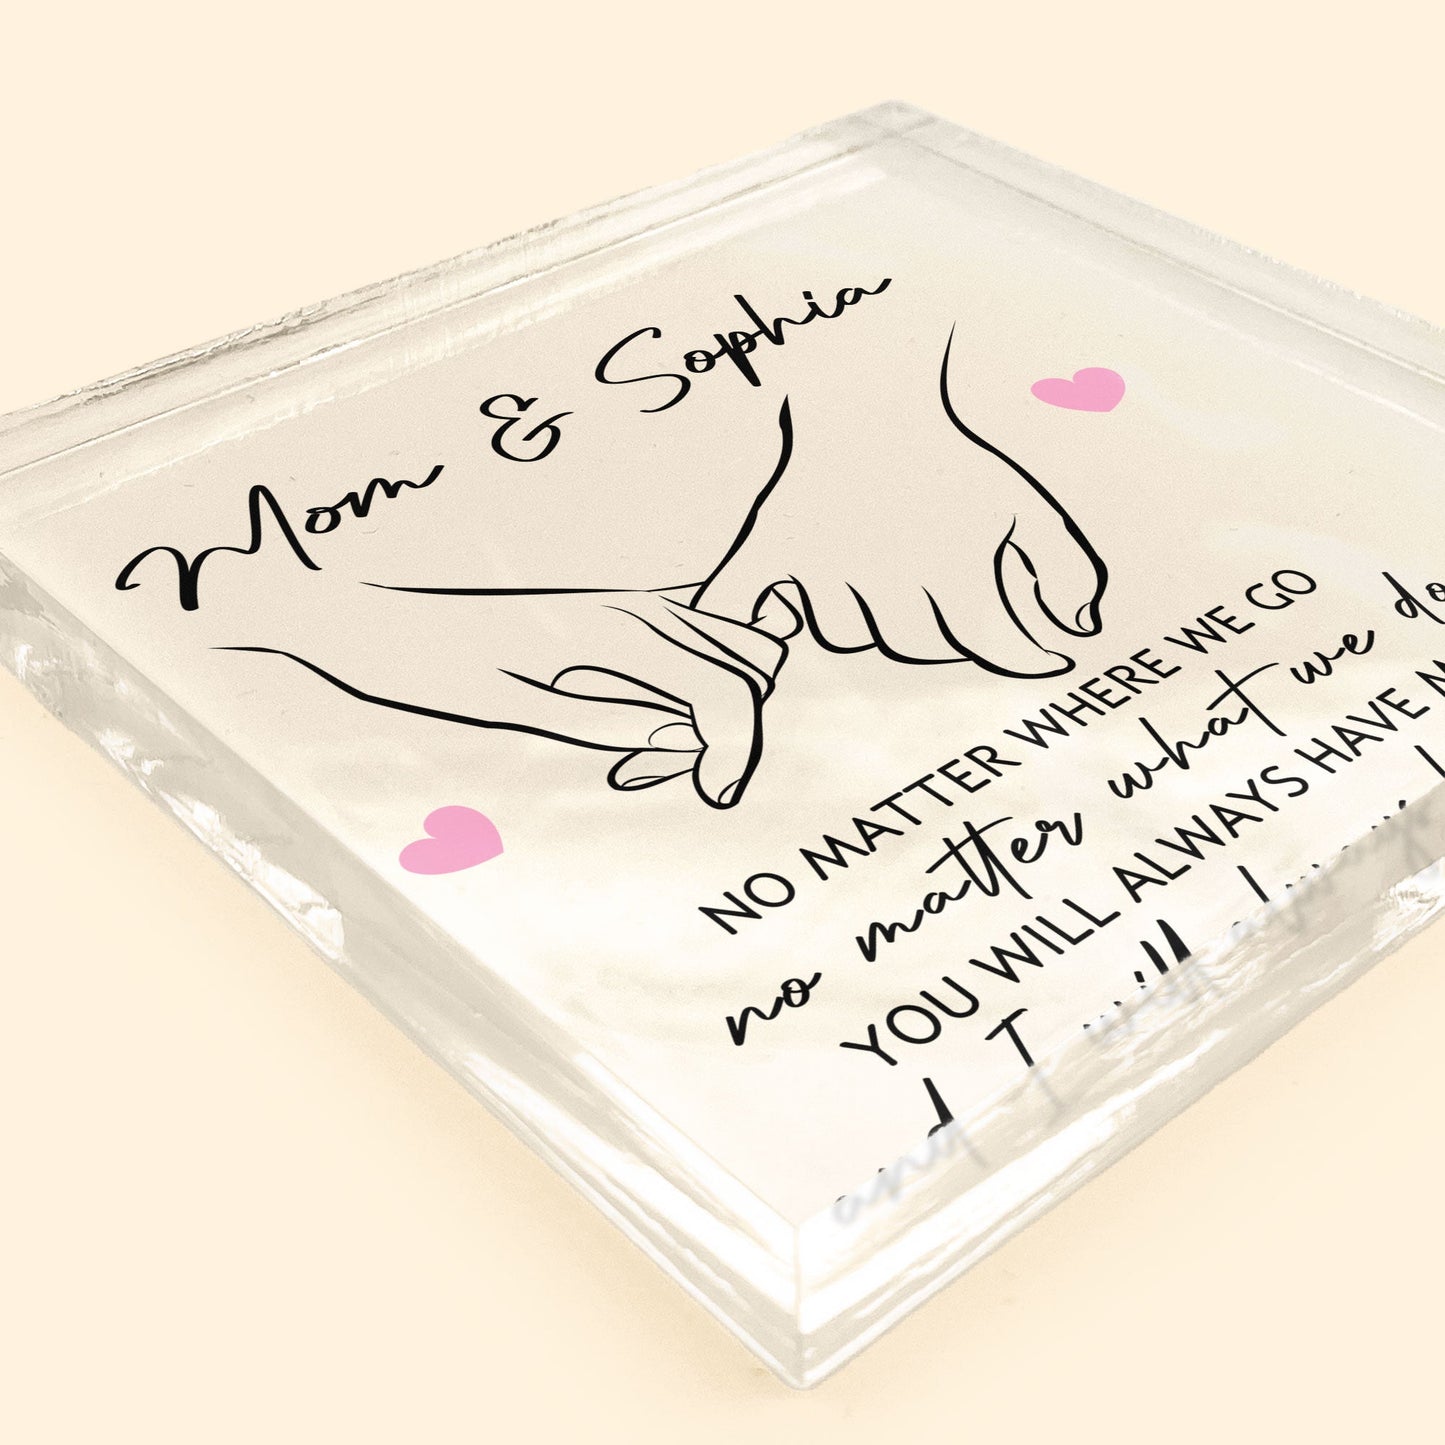 Mom & Sophia
NO MATTER WHERE WE GO
no matter what we do
YOU WILL ALWAYS HAVE
and I will always